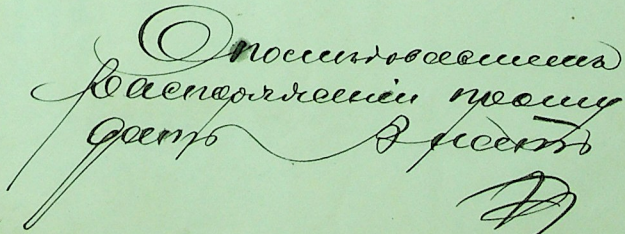 О послѣдовавшемъ
распоряженіи прошу
дать знать